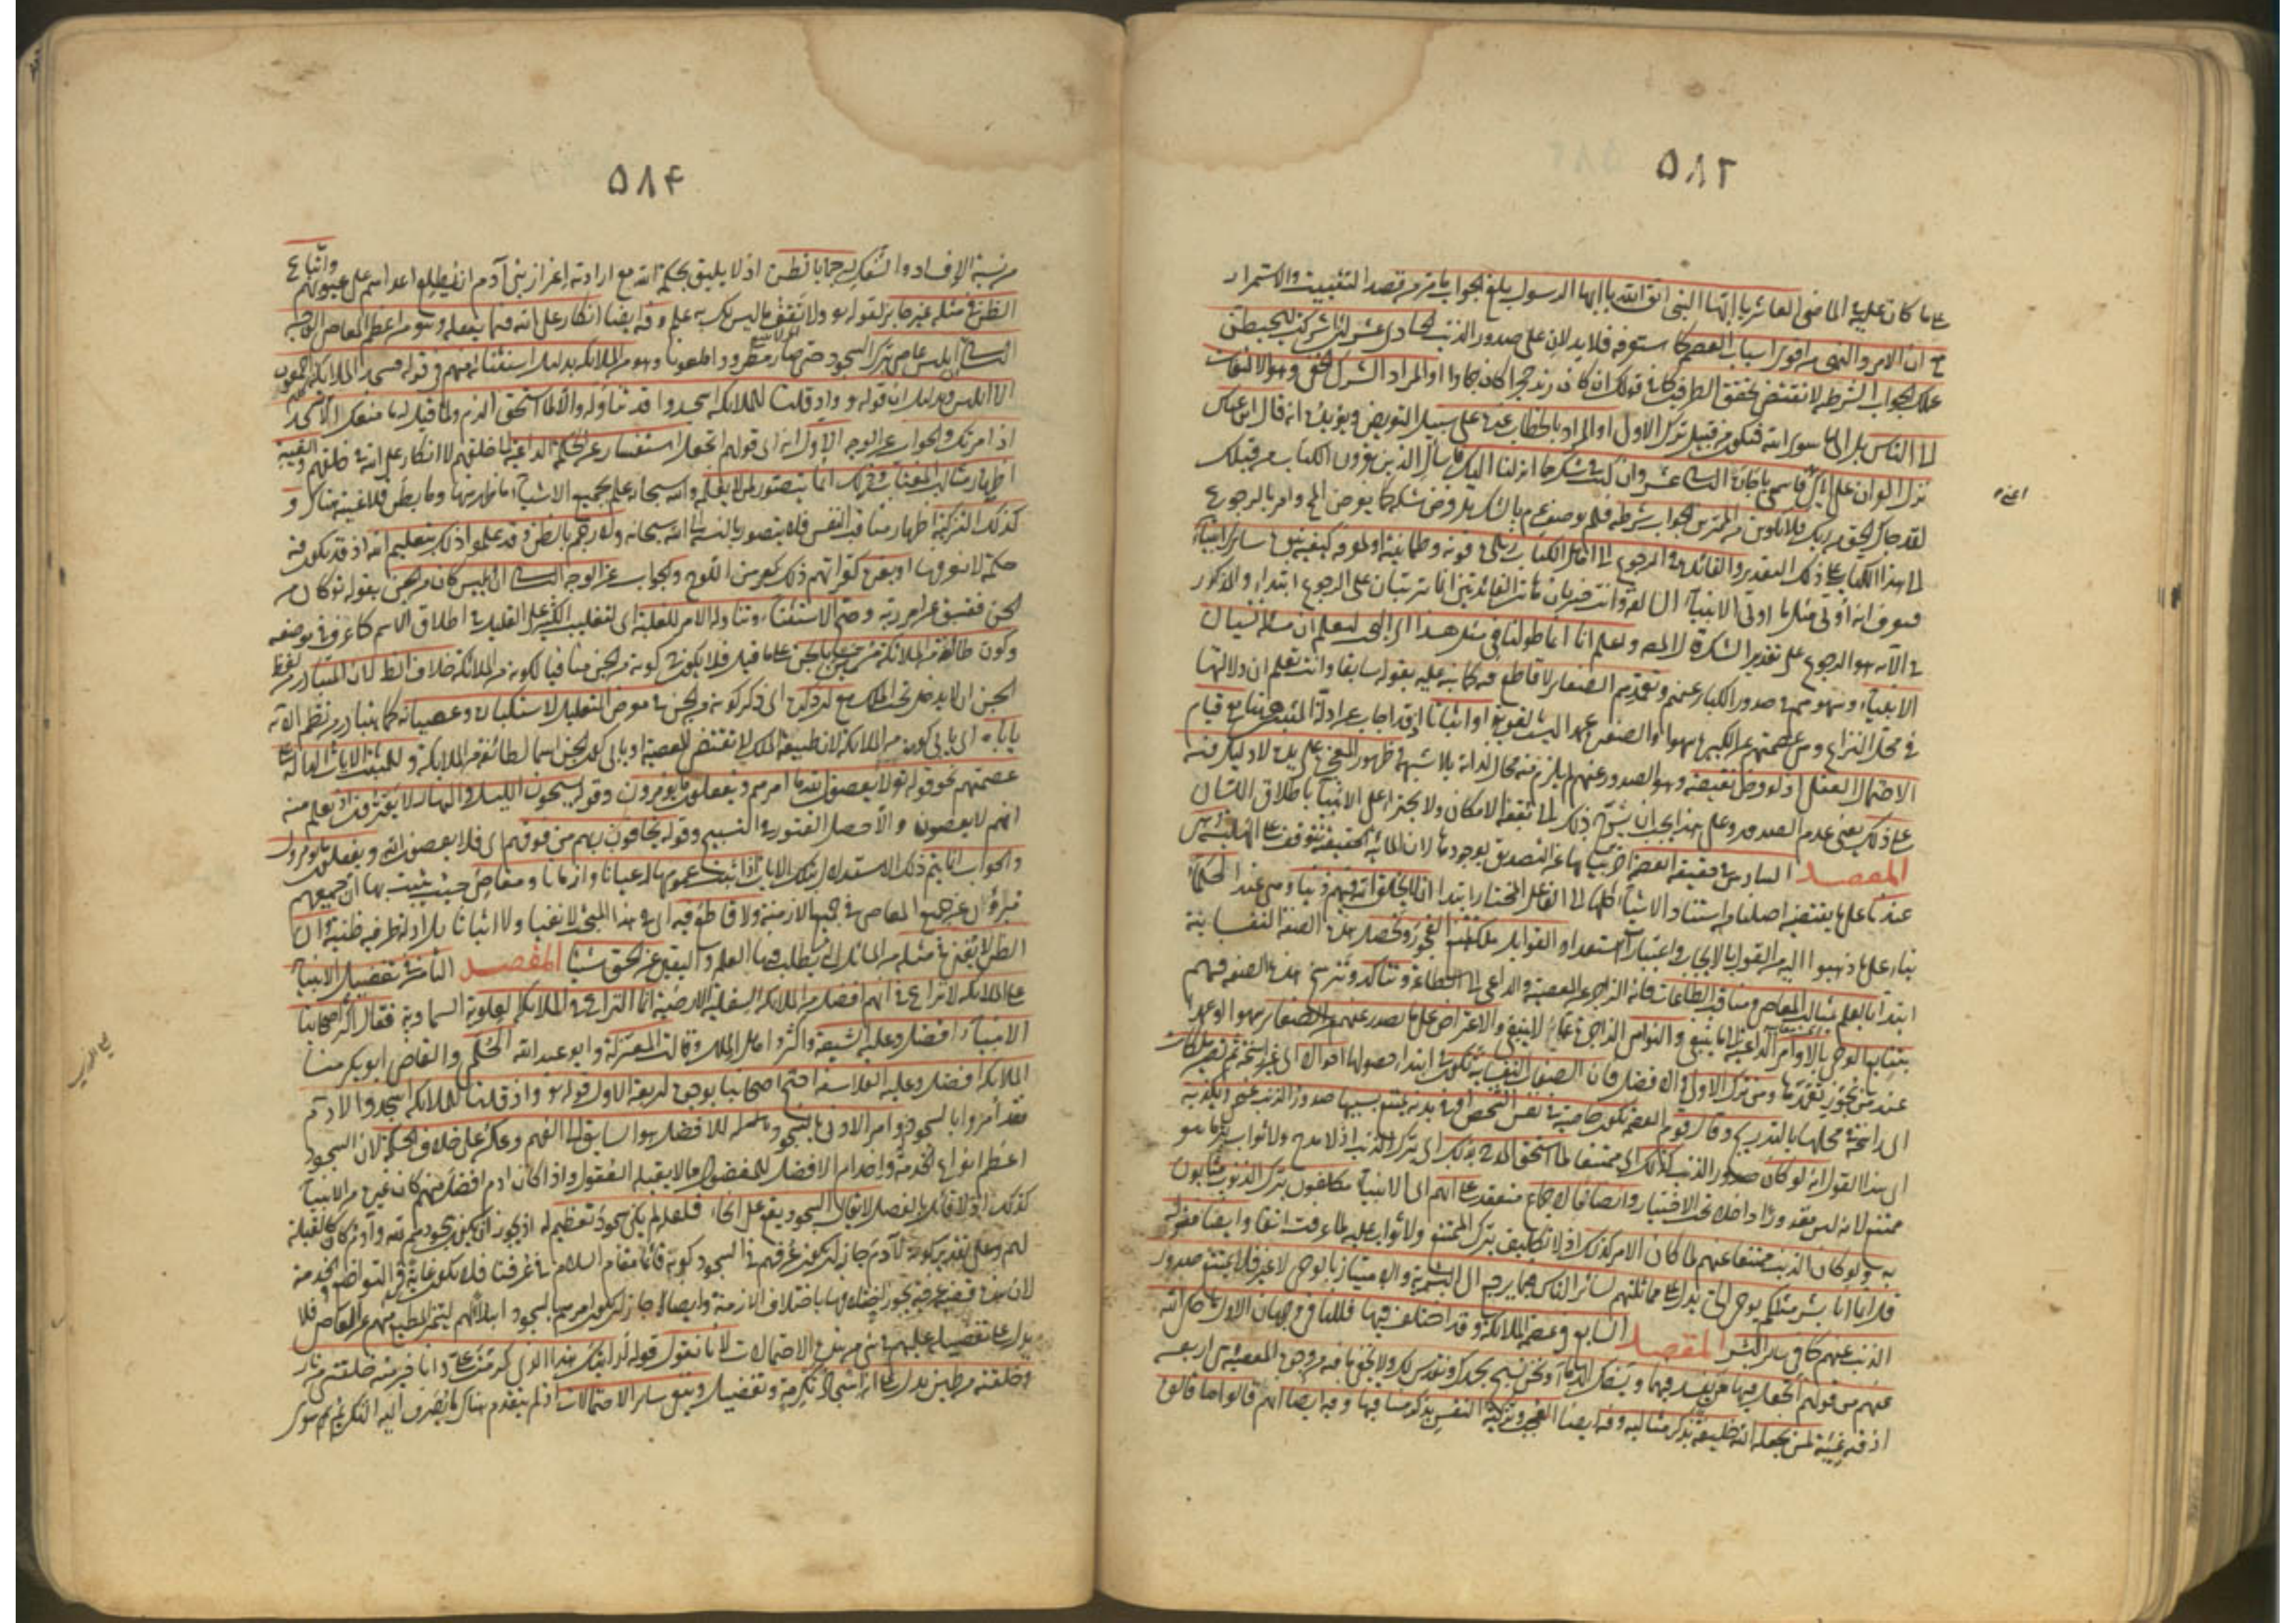 ٥٨٢
على ما كان عليه في الماضي العاشر يا ايها النبي اتق الله يا ايها الرسول بلغ الجواب ما مر من قصد التثبيت والاستمرار
مع ان الامر والنهي من اقوى اسباب العصمة كما ستعرفه فلا يدلان على صدور الذنب الحادى عشر لئن اشركت ليحبطن
عملك الجواب الشرطية لا تقتضى تحقق الطرفين كما في قولك ان كان زيد حجرا كان جمادا او المراد الشرك الخفي وهو الالتفات
الى الناس بل الى ما سوى الله فيكون من قبيل ترك الاولى او المراد بالخطاب غيره على سبيل التعريض ويؤيده انه قال ابن عباس
نزل القرآن على اياك اعني واسمعي يا جارة الثانى عشر وان كنت في شك مما انزلنا اليك فاسأل الذين يقرؤن الكتاب من قبلك
لقد جاءك الحق من ربك فلا تكونن من الممترين الجواب شرطية فلم يوصف عم بالشك بل فرض شكه كما يفرض المح وامر بالرجوع
الى هذا الكتاب على ذلك التقدير والفائدة في الرجوع الى اهل الكتاب زيادة قوته وطمانينته او لمعرفة كيفية نبوة سائر الانبياء
فيعرف انه اوتى مثل ما اوتى الانبياء السالفة وانت خبير بان هاتين الفائدتين انما ترتبان على الرجوع ابتداء والمذكور
في الآية هو الرجوع على تقدير الشك لا الامة ولعلم انا انما طولنا في مثل هذا الى البحث ليعلم ان مسألة نسيان
الانبياء وسهوهم في صدور الكبائر عنهم وتعمدهم الصغائر لا قاطع فيه كما نبه عليه بقوله سابقا وانت تعلم ان دلالتها
في محل النزاع وهي عصمتهم عن الكبيرة سهوا وعن الصغيرة عمدا ليست بالقوية او اثباتا اذ قد اجاب عن ادلة المثبتين هنا مع قيام
الاحتمال العقلى اذ لو فرض نقيضه وهو الصدور عنهم لم يلزم منه محال لذاته بلا شبهة في ظهور المعجز على يده لا دليل فيه
على ذلك يعنى عدم الصدور وعلى هذا يجب ان يسرح ذلك الى بقعة الامكان ولا يجترأ على الانبياء باطلاق اللسان
المقصد السادس في حقيقة العصمة اخر بيانها عن التصديق بوجودها لان المائية الحقيقية تتوقف على الهلية وهي
عندنا على ما يقتضيه اصلنا من استناد الاشياء كلها الى الفاعل المختار ابتداء ان لا يخلق الله فيهم ذنبا وهي عند الحكماء
بناء على ما ذهبوا اليه من القول بالايجاب واعتبار استعداد القوابل ملكة تمنع الفجور وتحصل هذه الصفة النفسانية
ابتداء بالعلم بمثالب المعاصي ومناقب الطاعات فانه الزاجر عن المعصية والداعي الى الطاعة وتتأكد وتترسخ هذه الصفة فيهم
بتتابع الوحى بالاوامر الداعية الى ما ينبغي والنواهي الزاجرة عما لا ينبغي والاعتراض على ما يصدر عنهم من الصغائر سهوا او عمدا
عند من يجوز تعمدها ومن ترك الاولى والافضل فان الصفات النفسانية تكون في ابتداء حصولها احوالا اى غير راسخة ثم تصير ملكات
اى راسخة في محلها بالتدريج وقال قوم العصمة تكون خاصية في نفس الشخص او في بدنه يمتنع بسببها صدور الذنب عنه ويكذبه
اى هذا القول انه لو كان صدور الذنب كذلك اى ممتنعا لما استحق المدح بذلك اى بترك الذنب اذ لا مدح ولا ثواب بترك ما هو
ممتنع لانه ليس مقدورا داخلا تحت الاختيار وايضا فالاجماع منعقد على انهم اى الانبياء مكلفون بترك الذنوب مثابون
به ولو كان الذنب ممتنعا عنهم لما كان الامر كذلك اذ لا تكليف بترك الممتنع ولا ثواب عليه لما عرفت آنفا وايضا فقوله
قل انما انا بشر مثلكم يوحى الى يدل على مماثلتهم لسائر الناس فيما يرجع الى البشرية والامتياز بالوحى لا غير فلا يمتنع صدور
الذنب عنهم كما في سائر البشر المقصد السابع في عصمة الملائكة وقد اختلف فيها فللنافى وجهان الاول ما حكى الله
عنهم من قولهم اتجعل فيها من يفسد فيها ويسفك الدماء ونحن نسبح بحمدك ونقدس لك ولا يخفى ما فيه من وجوه المعصية هي اربعة
اذ فيه غيبة لمن يجعله الله خليفة بذكر مثالبه وفيه ايضا العجب وتزكية النفس بذكر مناقبها وفيه ايضا انهم قالوا ما قالوه
٥٨٤
من نسبة الافساد والسفك اليه رجما بالظن اذ لا يليق بحكمة الله مع ارادته اعزاز بني آدم ان يطلع اعداءهم على عيوبهم واتباع
الظن في مثله غير جائز لقوله تعالى ولا تقف ما ليس لك به علم وفيه ايضا انكار على الله فيما يفعله وهو من اعظم المعاصي الوجه
الثاني ابليس عاص بترك السجود حتى صار مطرودا ملعونا وهو من الملائكة بدليل استثنائه منهم في قوله فسجد الملائكة كلهم اجمعون
الا ابليس وبدليل ان قوله واذ قلنا للملائكة اسجدوا قد تناوله والا لما استحق الذم ولما قيل له ما منعك الا تسجد
اذ امرتك والجواب عن الوجه الاول انه اى قولهم اتجعل استفسار عن الحكمة الداعية الى خلقهم لا انكار على الله في خلقهم والغيبة
اظهار مثالب المغتاب وذلك انما يتصور لمن لا يعلمه والله سبحانه عليم بجميع الاشياء ما ظهر منها وما بطن فلا غيبة هناك و
كذلك التزكية اظهار مناقب النفس فلا يتصور بالنسبة الى الله سبحانه ولا رجم بالظن وقد علموا ذلك بتعليم الله اذ قد يكون فيه
حكمة لا نعرفها او بغيره كقراءتهم ذلك من اللوح والجواب عن الوجه الثاني ان ابليس كان من الجن بقوله تع كان من
الجن ففسق عن امر ربه وصح الاستثناء وتناوله الامر للغلبة اى لتغليب الكثير على القليل في اطلاق الاسم كما عرف في موضعه
وكون طائفة من الملائكة مسمين بالجن على ما قيل فلا يكون كونه من الجن منافيا لكونه من الملائكة خلاف الظ لان المتبادر من لفظ
الجن ان لا يدخل تحت الملك مع ان ذكره اى ذكر كونه من الجن في معرض التعليل لاستكباره وعصيانه كما يتبادر من نظم الآية
ياباه اى يابى كونه من الملائكة لان طبيعة الملك لا تقتضي المعصية او يابى كون الجن اسما لطائفة من الملائكة وللمثبت الآيات الدالة على
عصمتهم نحو قوله تع لا يعصون الله ما امرهم ويفعلون ما يؤمرون وقوله يسبحون الليل والنهار لا يفترون اذ يعلم منه
انهم لا يعصون والا حصل الفتور في التسبيح وقوله يخافون ربهم من فوقهم اى فلا يعصون الله ويفعلون ما يؤمرون
والجواب انما يتم ذلك الاستدلال بتلك الآيات اذا ثبت عمومها اعيانا وازمانا ومعاصي حيث يثبت بها ان جميعهم
مبرؤن عن جميع المعاصي في جميع الازمنة ولا قاطع فيه اى في هذا المبحث لا نفيا ولا اثباتا بل ادلة طرفيه ظنية وان
الظن لا يغني في مثله من المسائل التي يطلب فيها العلم واليقين عن الحق شيئا المقصد الثامن في تفضيل الانبياء
على الملائكة لا نزاع في انهم افضل من الملائكة السفلية الارضية انما النزاع في الملائكة العلوية السماوية فقال اكثر اصحابنا
الانبياء افضل وعليه الشيعة واكثر اهل الملل وقالت المعتزلة وابو عبد الله الحليمي والقاضي ابو بكر منا
الملائكة افضل وعليه الفلاسفة احتج اصحابنا بوجوه اربعة الاول قوله تع واذ قلنا للملائكة اسجدوا لآدم
فقد امروا بالسجود له وامر الادنى بالسجود للافضل هو السابق الى الفهم وعكسه على خلاف الحكمة لان السجود
اعظم انواع الخدمة واخدام الافضل للمفضول مما لا يقبله العقول واذا كان آدم افضل منهم كان غيره من الانبياء
كذلك اذ لا قائل بالفصل لا يقال السجود يقع على انحاء فلعله لم يكن سجود تعظيم له اذ يجوز ان يكون سجودهم لله وآدم كان كالقبلة
لهم وعلى تقدير كونه لآدم جاز ان يكون عرفهم في السجود كونه قائما مقام السلام في عرفنا فلا يكون غاية في التواضع والخدمة
لان هذه قضية عرفية يجوز اختلافها باختلاف الازمنة وايضا جاز ان يكون امرهم بالسجود ابتلاء لهم ليتميز المطيع منهم عن العاصي فلا
يدل على تفضيله عليهم شيء من هذه الاحتمالات لانا نقول قوله أرأيتك هذا الذى كرمت على وانا خير منه خلقتني من نار
وخلقته من طين يدل على ان اسجادهم تكرمة وتفضيل وينفي سائر الاحتمالات اذ لم يتقدم هناك ما يصرف اليه التكريم سوى